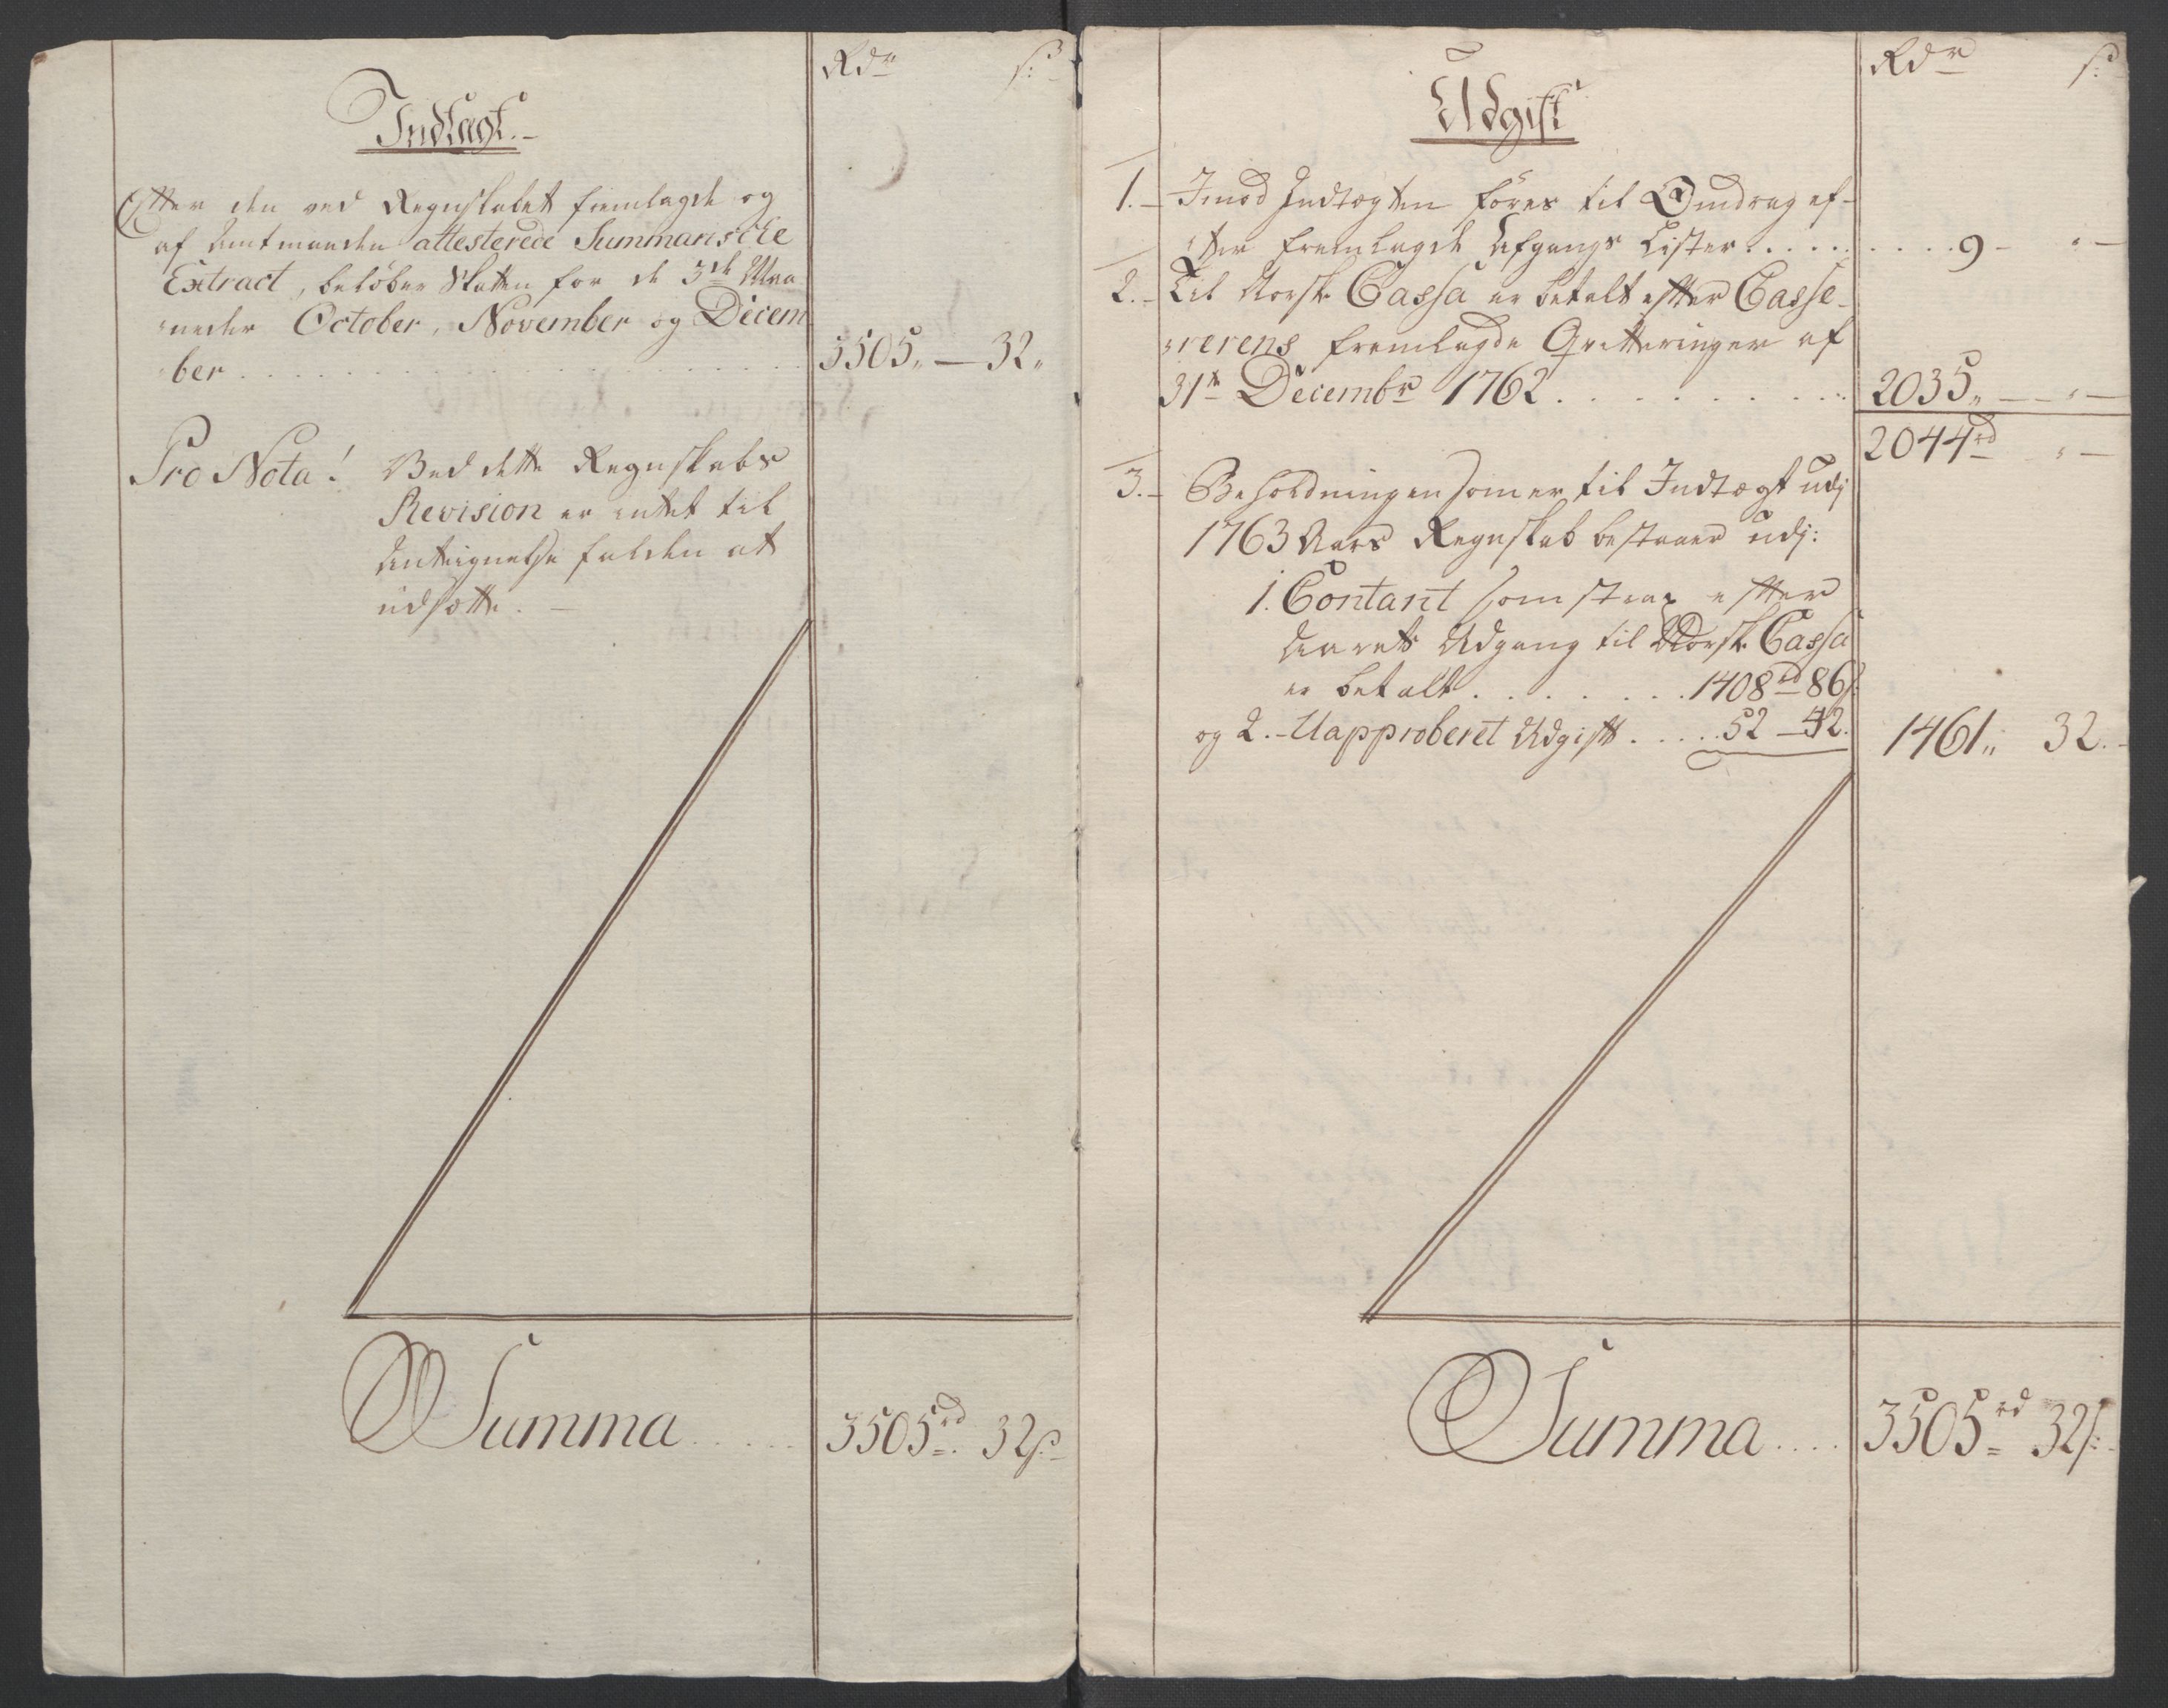 Rdr ß:
Indtægt.-
Efter den ved Regnskabet fremlagde og
af Amtmanden attesterede Summariske
Extract, beløber Skatten for de 3de Maa-
neder October, November og Decem
ber . . . . . 3505„ — 32„
Pro Nota! Ved dette Regnskabs
Revision er intet til
Antegnelse falden at
udsætte. —
Summa . . . . 3505rd. 32ß
Rdr ß:
Udgift
1.- Imod Indtægten føres til Omdrag ef-
ter fremlagde Afgangs Lister . . . . . 9 - " -
2.- Til Norsk Cassa er betalt efter Casse-
rerens fremlagde Qvitteringer af
31te Decembr 1762 . . . . . 2035„ — " —
2044rd " —
3.- Beholdningen som er til Indtægt udj
1763 Aars Regnskab bestaaer udj:
1. Contant som strax efter
Aarets Udgang til Norsk Cassa
er betalt . . . . . 1408rd 86ß
og 2.- Uapproberet Udgift . . . . 52 — 42. 1461„ 32.-
Summa . . . . 3505rd 32ß: